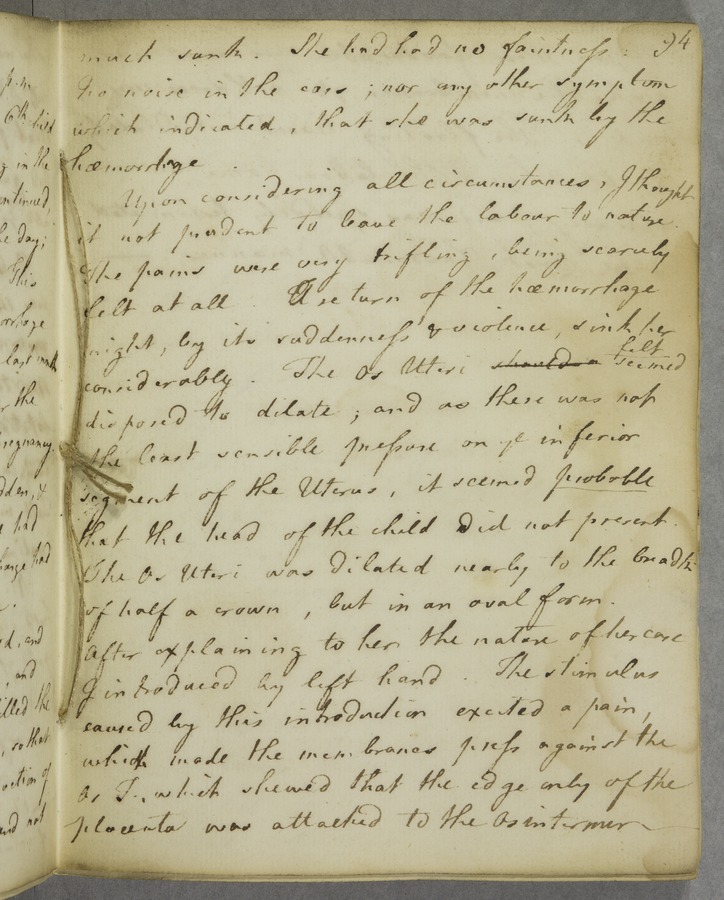 94
much sunk. She had had no faintness:
no noise in the ears; nor any other symptom
which indicated, that she was sunk by the
hæmorrhage.
Upon considering all circumstances, I thought
it not prudent to leave the labour to nature.
The pains were very trifling, being scarcely
felt at all. A return of the hæmorrhage
might, by its suddenness & violence, sink her
considerably. The Os Uteri felt seemed
disposed to dilate; and as there was not
the least sensible pressure on ye inferior
segment of the Uterus, it seemed probable
that the head of the child did not present.
The Os Uteri was dilated nearly to the breadth
of half a crown, but in an oval form.
After explaining to her the nature of her case
I introduced my left hand. The stimulus
caused by this introduction excited a pain,
which made the membranes press against the
Os T., which shewed that the edge only of the
placenta was attached to the Os internum